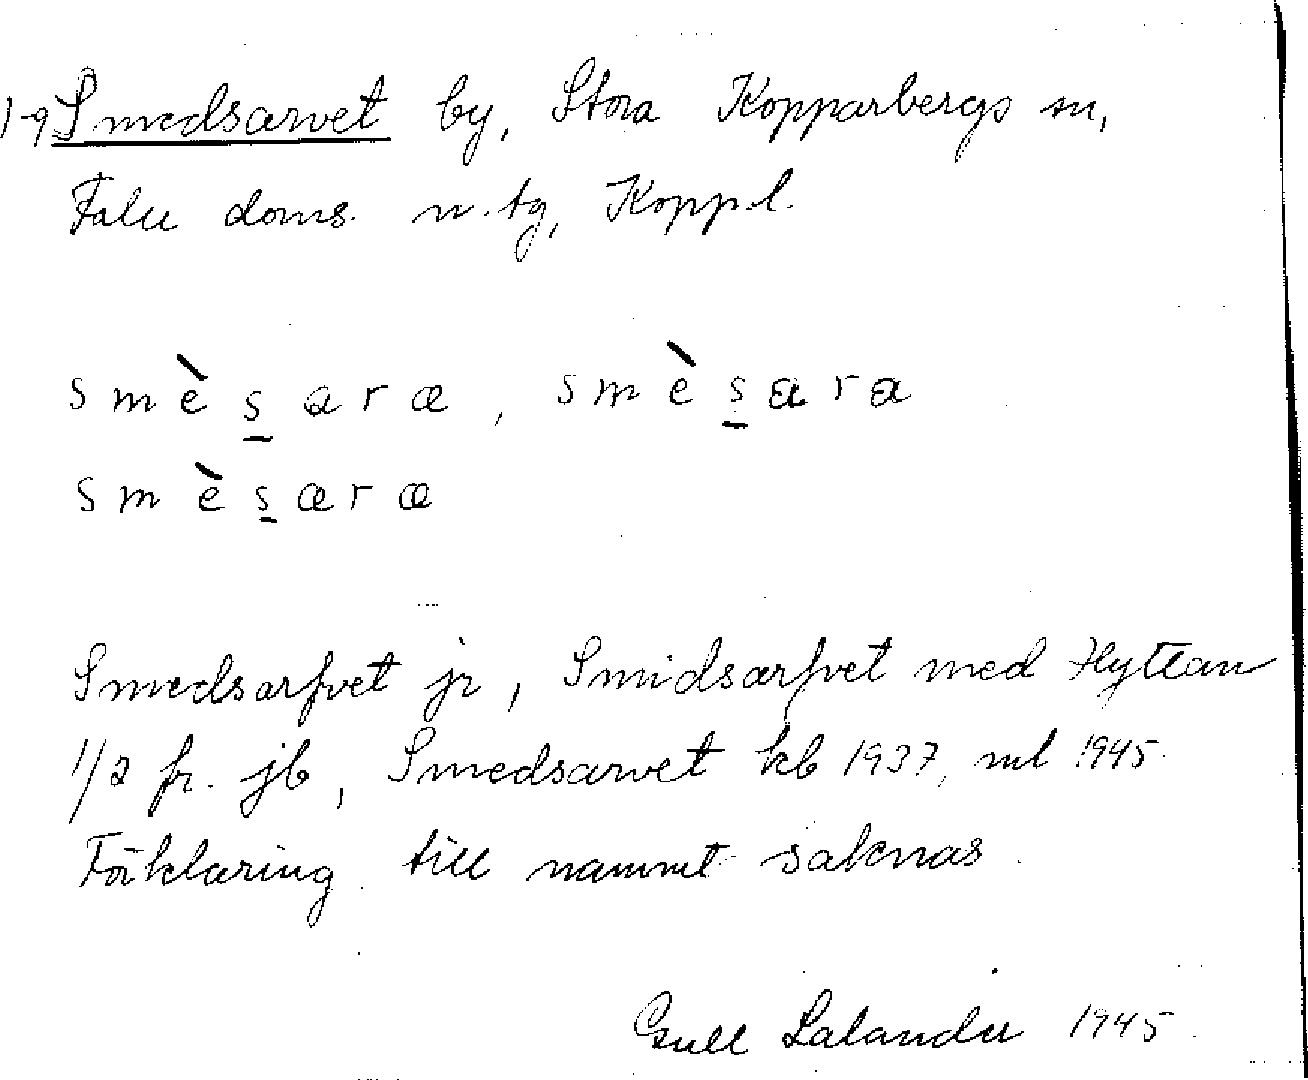 1-9 Smedsarvet by, Stora Kopparbergs sn,
Falu doms. n. tg, Kopp.l.
s m è s a r a, s m è s a r a
s m è s a r a
Smedsarfvet jr, Smidsarfvet med Hyttan
1/2 fr. jb, Smedsarvet kb 1937, ml 1945.
Förklaring till namnet saknas.
Gull Lalander 1945.